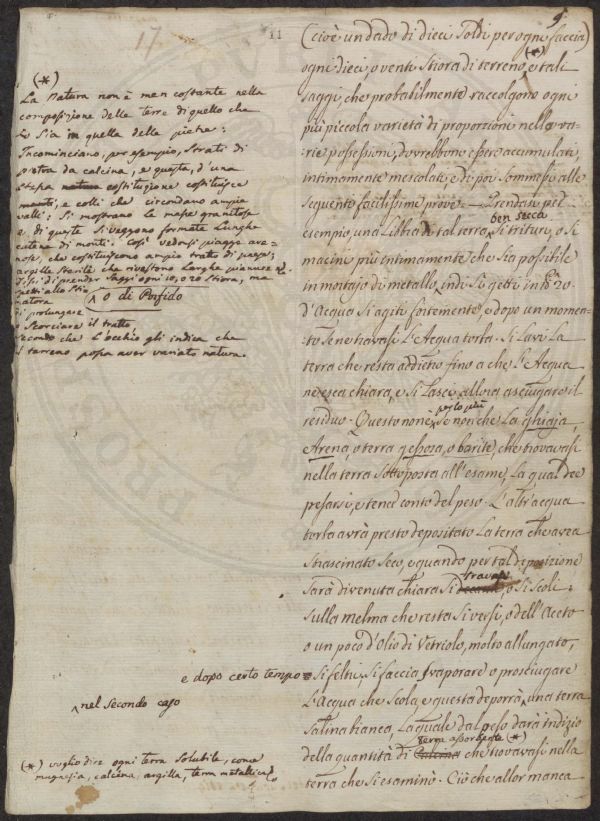 17
11
9
(*)
La Natura non è men costante nella
composizione delle terre di quello che
lo Sia in quella delle pietre:
Incominciano, per esempio, strati di
pietra da calcina, e questa, d'una
stessa natura costituzione costituisce
monti, e colli che circondano ampie
valli; Si mostrano le masse granitose
e di queste si veggono formate lunghe
catene di monti. Così vedonsi piagge are-
nose, che costituiscono ampio tratto di paese;
argille sterili che rivestono larghe pianure
di prender Saggi ogni 10, o 20 Stiora, ma
di prolungare
o Scorciare il tratto
secondo che L'occhio gli indica che
il terreno possa aver variato natura.
o di Porfido
e dopo certo tempo
nel secondo caso
(*) voglio dire ogni terra solubile, come
magnesia, calcina, argilla, terra metallica
(cioè un dado di dieci Soldi per ogni faccia)
ogni dieci, o venti Stiora di terreno (*), e tali
saggi, che probabilmente raccolgono ogni
più piccola varietà di proporzioni nelle va-
rie possessioni, dovrebbono essere accumulati,
intimamente mescolati, e di poi Sommessi alle
seguenti facilissime prove. — Prendasi per
esempio, una Libbra di tal terra ben secca, Si trituri, o si
macini più intimamente che sia possibile
in mortajo di metallo, indi Si getti in 20
d'Acqua Si agiti fortemente, e dopo un momen-
to Sene travasi L'Acqua torba. Si lavi La
terra che resta addietro fino a che L'Acqua
ne esca chiara, e Si Lasci allora asciugare il
residuo. Questo non è per lo più, se non che La ghiaja,
Arena, o terra gessosa, o barite, che trovavasi
nella terra Sottoposta all'esame, La qual dee
pesarsi, e tener conto del peso. L'altr'acqua
torba avrà presto depositato La terra che avea
Strascinato Seco, e quando per tal deposizione
Sarà divenuta chiara Si travasi, o Si scoli;
Sulla melma che resta si versi, o dell'Aceto
o un poco d'Olio di Vetriolo, molto allungato,
Si feltri, Si faccia Svaporare o prosciugare
L'Acqua che Scola, e questa deporrà, una terra
Salina bianca, La quale dal peso darà indizio
della quantità di terra assorbente (*) che trovavasi nella
terra che Si esaminò. Ciò che allor manca